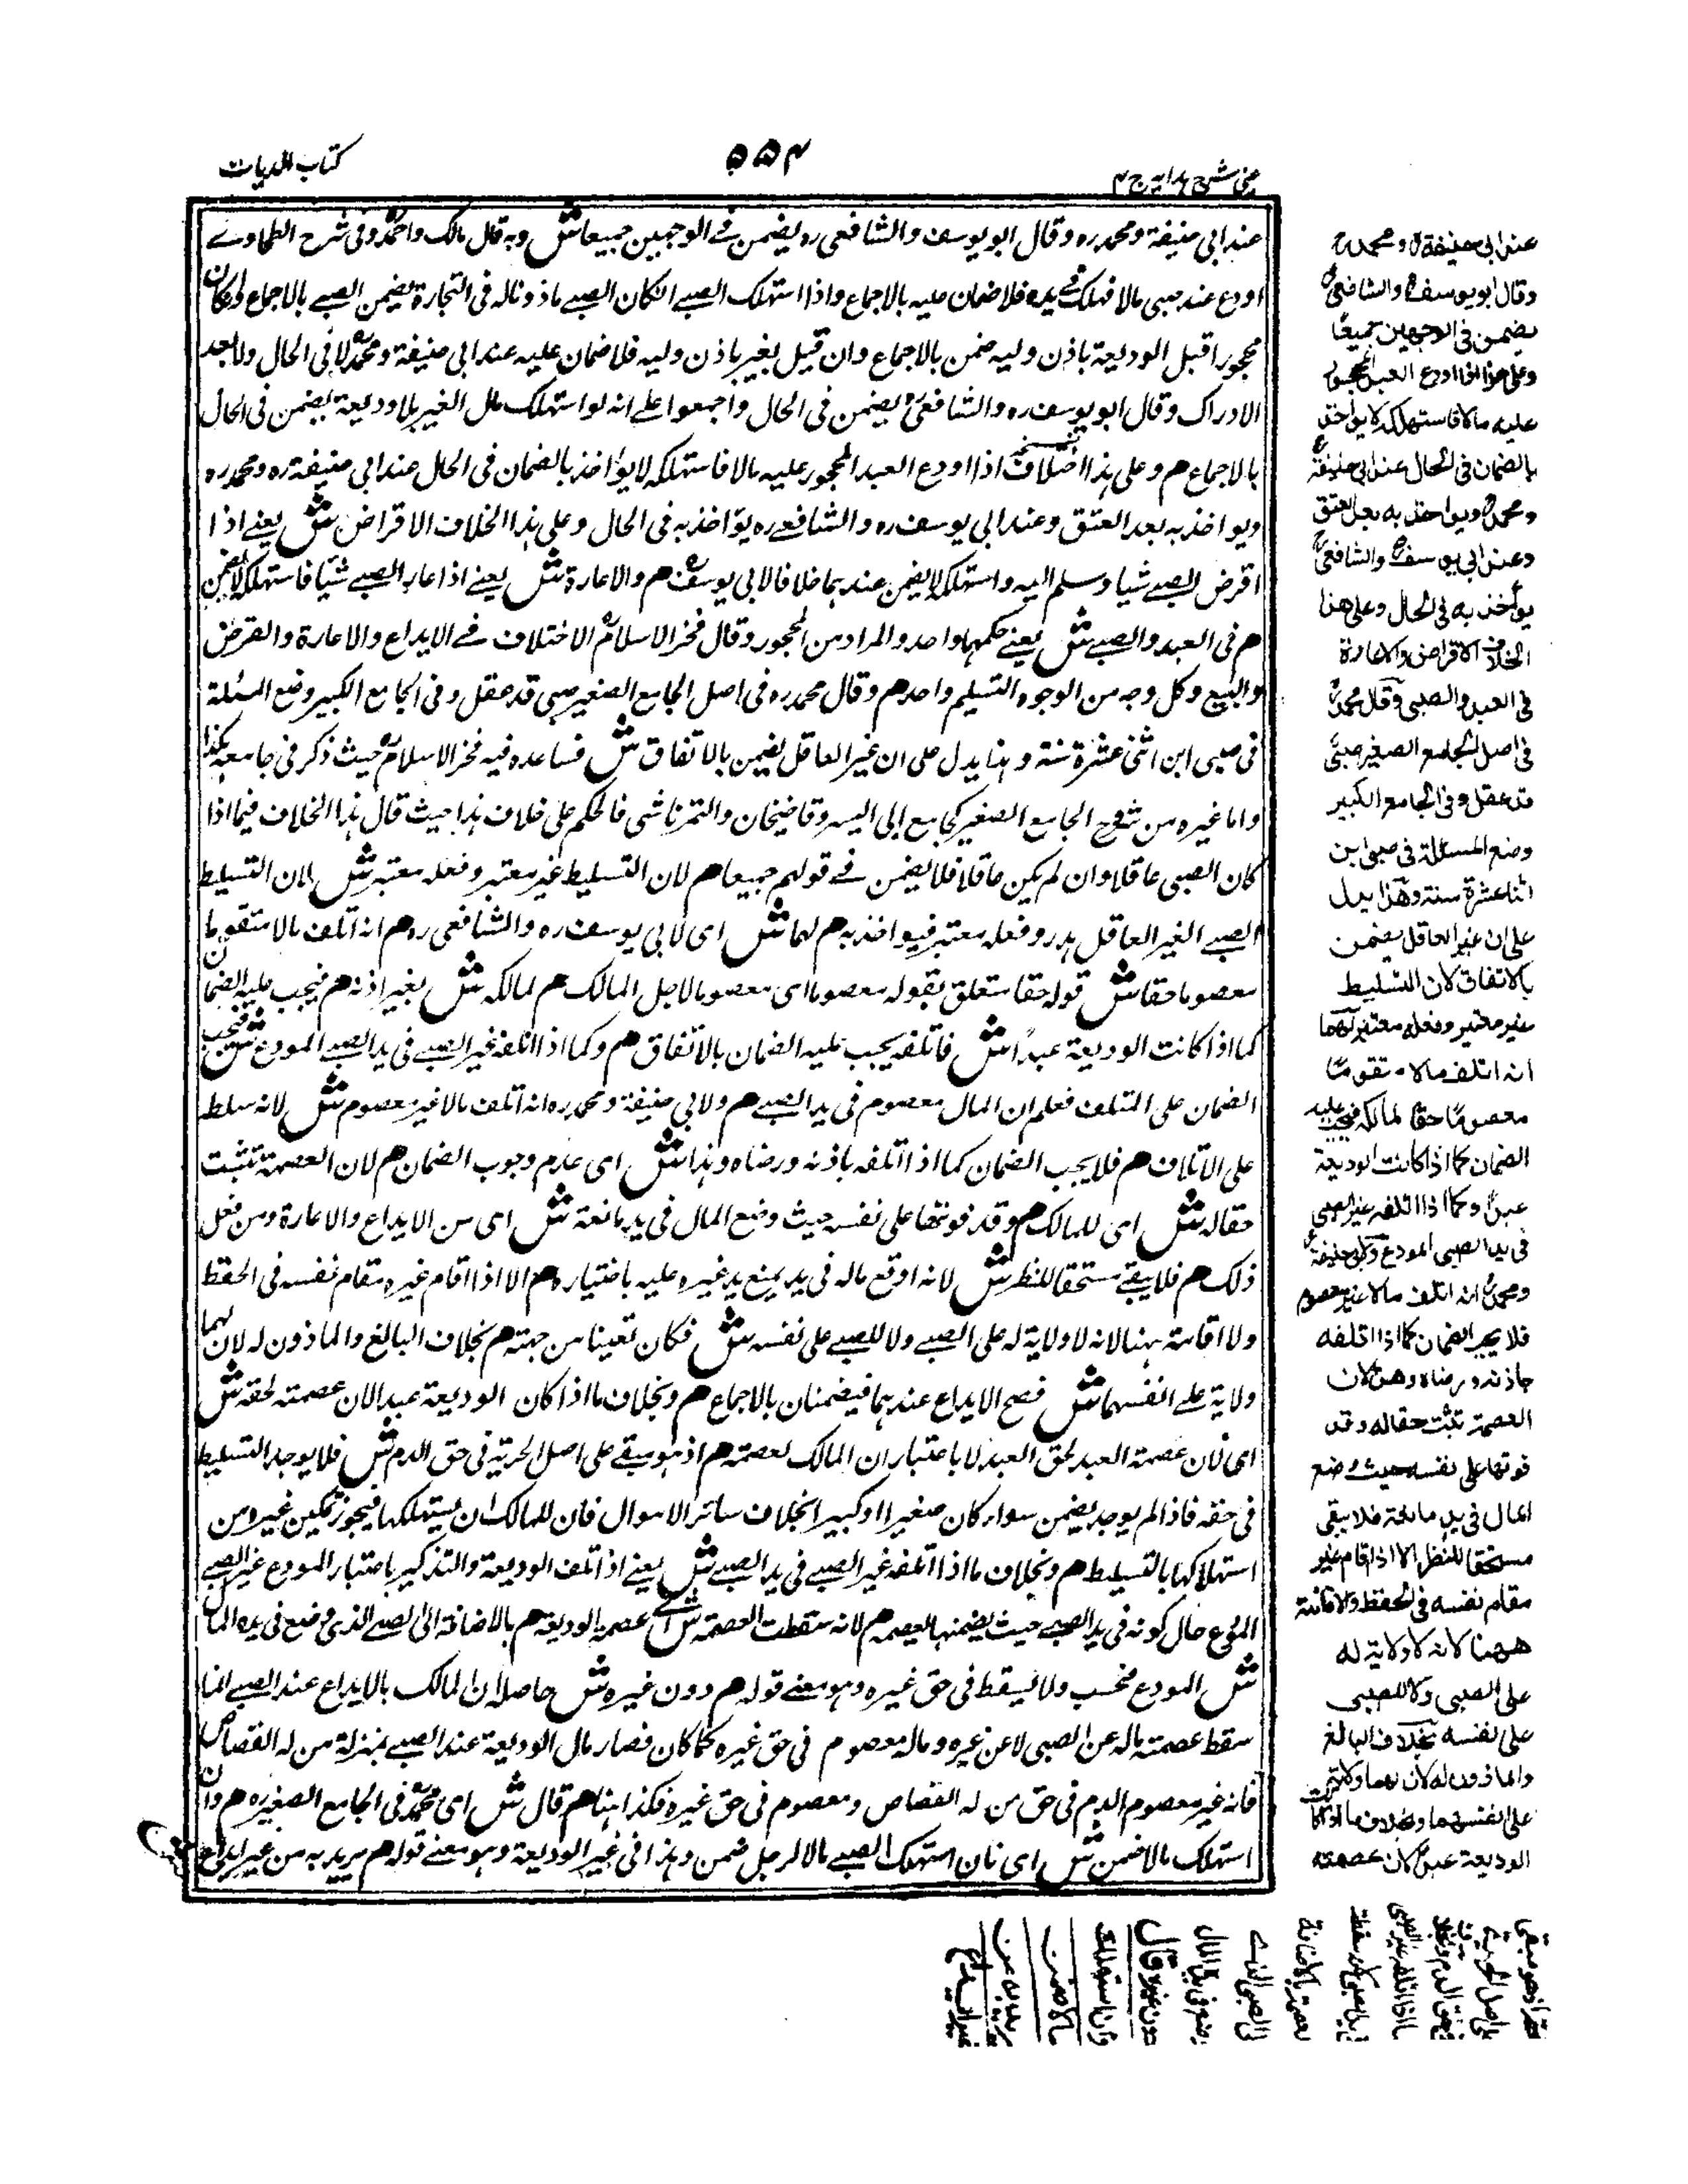 عینی شرح ہدایہ ج ۴
۵۵۴
کتاب الدیات
عند ابی حنیفة ومحمد رہ وقال ابو یوسف والشافعی رہ یضمن فے الوجہین جمیعا ش وبہ قال مالک واحمد وفی شرح الطحاوے
اودع عند صبی مالا فہلک فے یدہ فلا ضمان علیہ بالاجماع واذا استہلک الصبے ان کان الصبے ماذونا لہ فی التجارة یضمن الصبے بالاجماع وان کان
محجورا قبل الودیعة باذن ولیہ ضمن بالاجماع وان قبل بغیر باذن ولیہ فلا ضمان علیہ عند ابی حنیفة ومحمد لا فی الحال ولا بعد
الادراک وقال ابو یوسف رہ والشافعی رہ یضمن فی الحال واجمعوا علے انہ لو استہلک مال الغیر بلا ودیعة یضمن فی الحال
بالاجماع هم وعلی ہذا اختلاف اذا اودع العبد المحجور علیہ مالا فاستہلکہ لا یؤاخذ بالضمان فی الحال عند ابی حنیفة رہ ومحمد رہ
ویواخذ بہ بعد العتق وعند ابی یوسف رہ والشافعے رہ یؤاخذ بہ فی الحال وعلی ہذا الخلاف الاقراض ش یعنے اذا
اقرض الصبے شیا وسلم الیہ واستہلکہ لا یضمن عندہما خلافا لابی یوسف هم والاعارة ش یعنے اذا اعار الصبے شیئا فاستہلکہ لا یضمن
هم فی العبد والصبے ش یعنے حکمہما واحد والمراد من المحجور وقال فخر الاسلام الاختلاف فے الایداع والاعارة والقرض
والبیع وکل وجہ من الوجوہ التسلیم واحد هم وقال محمد رہ فی اصل الجامع الصغیر صبی قد عقل وفی الجامع الکبیر وضع المسئلة
فی صبی ابن اثنی عشرة سنة وہذا یدل علی ان غیر العاقل یضمن بالاتفاق ش فساعدہ فیہ فخر الاسلام حیث ذکر فی جامعہ ہکذا
واما غیرہ من شروح الجامع الصغیر کجامع ابی الیسر وقاضیخان والتمرتاشی فالحکم علی خلاف ہذا حیث قال ہذا الخلاف فیما اذا
کان الصبی عاقلا وان لم یکن عاقلا فلا یضمن فے قولہم جمیعا هم لان التسلیط غیر معتبر وفعلہ معتبر ش لان التسلیط
الصبے الغیر العاقل ہدر وفعلہ معتبر فیواخذ بہ هم لہما ش ای لابی یوسف رہ والشافعی رہ هم انہ اتلف مالا متقوما
معصوما حقا ش قولہ حقا متعلق بقولہ معصوما ای معصوما لاجل المالک هم لمالکہ ش بغیر اذنہ هم فیجب علیہ الضمان
کما اذا کانت الودیعة عبدا ش فاتلفہ یجب علیہ الضمان بالاتفاق هم وکما اذا اتلفہ غیر الصبے فی ید الصبے المودع ش فیجب
الضمان علی المتلف فعلم ان المال معصوم فی ید الصبے هم ولابی حنیفة ومحمد رہ انہ اتلف مالا غیر معصوم ش لانہ سلط
علی الاتلاف هم فلا یجب الضمان کما اذا اتلفہ باذنہ ورضاہ وہذا ش ای عدم وجوب الضمان هم لان العصمة تثبت
حقا لہ ش ای للمالک هم وقد فوتہا علی نفسہ حیث وضع المال فی ید مانعة ش ای من الایداع والاعارة ومن فعل
ذلک هم فلا یبقے مستحقا للنظر ش لانہ اوقع مالہ فی ید یمنع ید غیرہ علیہ باختیارہ هم الا اذا اقام غیرہ مقام نفسہ فی الحفظ
ولا اقامة ہہنا لانہ لا ولایة لہ علی الصبے ولا للصبے علی نفسہ ش فکان تعینا من جہتہ هم بخلاف البالغ والماذون لہ لان لہما
ولایة علے انفسہما ش فصح الایداع عندہما فیضمنان بالاجماع هم وبخلاف ما اذا کان الودیعة عبدا لان عصمتہ لحقہ ش
ای لان عصمة العبد لحق العبد لا باعتبار ان المالک لعصمتہ هم اذ ہو مبقے علی اصل الحریة فی حق الدم ش فلا یوجد التسلیط
فی حقہ فاذا لم یوجد یضمن سواء کان صغیرا او کبیرا بخلاف سائر الاموال فان للمالک ان یستہلکہا فیجوز تمکین غیرہ من
استہلاکہا بالتسلیط هم وبخلاف ما اذا اتلفہ غیر الصبے فی ید الصبے ش یعنے اذا تلف الودیعة والتذکیر باعتبار المودع غیر الصبے
المودع حال کونہ فی ید الصبے حیث یضمنہا لعصمة هم لانہ سقطت العصمة ش ای عصمة الودیعة هم بالاضافة الی الصبے الذی وضع فی یدہ المال
ش المودع فحسب ولا یسقط فی حق غیرہ وہو معنے قولہ هم دون غیرہ ش حاصلہ ان المالک بالایداع عند الصبے انما
سقط عصمتہ مالہ عن الصبی لا عن غیرہ ومالہ معصوم فی حق غیرہ کما کان فصار مال الودیعة عند الصبے بمنزلة من لہ القصاص
فانہ غیر معصوم الدم فی حق من لہ القصاص ومعصوم فی حق غیرہ فکذا ہہنا هم قال ش ای محمد فی الجامع الصغیر رہ هم وان
استہلک مالا ضمن ش ای فان استہلک الصبے مالا لرجل ضمن وہذا فی غیر الودیعة وہو معنے قولہ هم یرید بہ من غیر ایداع
عند ابی حنیفة ومحمد
وقال ابو یوسف والشافعی
یضمن فی الوجهین جمیعا
وعلی هذا اذا اودع العبد المحجور
علیه مالا فاستهلکه لا یواخذ
بالضمان فی الحال عند ابی حنیفة
ومحمد ویواخذ به بعد العتق
وعند ابی یوسف والشافعی
یؤاخذ به فی الحال وعلی هذا
الخلاف الاقراض والاعارة
فی العبد والصبی وقال محمد
فی اصل الجامع الصغیر صبی
قد عقل وفی الجامع الکبیر
وضع المسئلة فی صبی ابن
اثنا عشرة سنة وهذا یدل
علی ان غیر العاقل یضمن
بالاتفاق لان التسلیط
غیر معتبر وفعله معتبر لهما
انه اتلف مالا متقوما
معصوما حقا لمالکه فیجب علیه
الضمان کما اذا کانت الودیعة
عبدا وکما اذا اتلفه غیر الصبی
فی ید الصبی المودع ولابی حنیفة
ومحمد انه اتلف مالا غیر معصوم
فلا یجب الضمان کما اذا اتلفه
باذنه ورضاه وهذا لان
العصمة تثبت حقا له وقد
فوتها علی نفسه حیث وضع
المال فی ید مانعة فلا یبقی
مستحقا للنظر الا اذا اقام غیره
مقام نفسه فی الحفظ ولا اقامة
ههنا لانه لا ولایة له
علی الصبی ولا للصبی
علی نفسه بخلاف البالغ
والماذون له لان لهما ولایة
علی انفسهما وبخلاف ما اذا کان
الودیعة عبدا لان عصمته
لحقه اذ هو مبقی
علی اصل الحریة
فی حق الدم وبخلاف
ما اذا اتلفه غیر الصبی
فی ید الصبی لانه سقطت
العصمة بالاضافة
الی الصبی الذے
وضع فی یده المال
دون غیره قال
وان استهلک
مالا ضمن
یرید به من
غیر ایداع